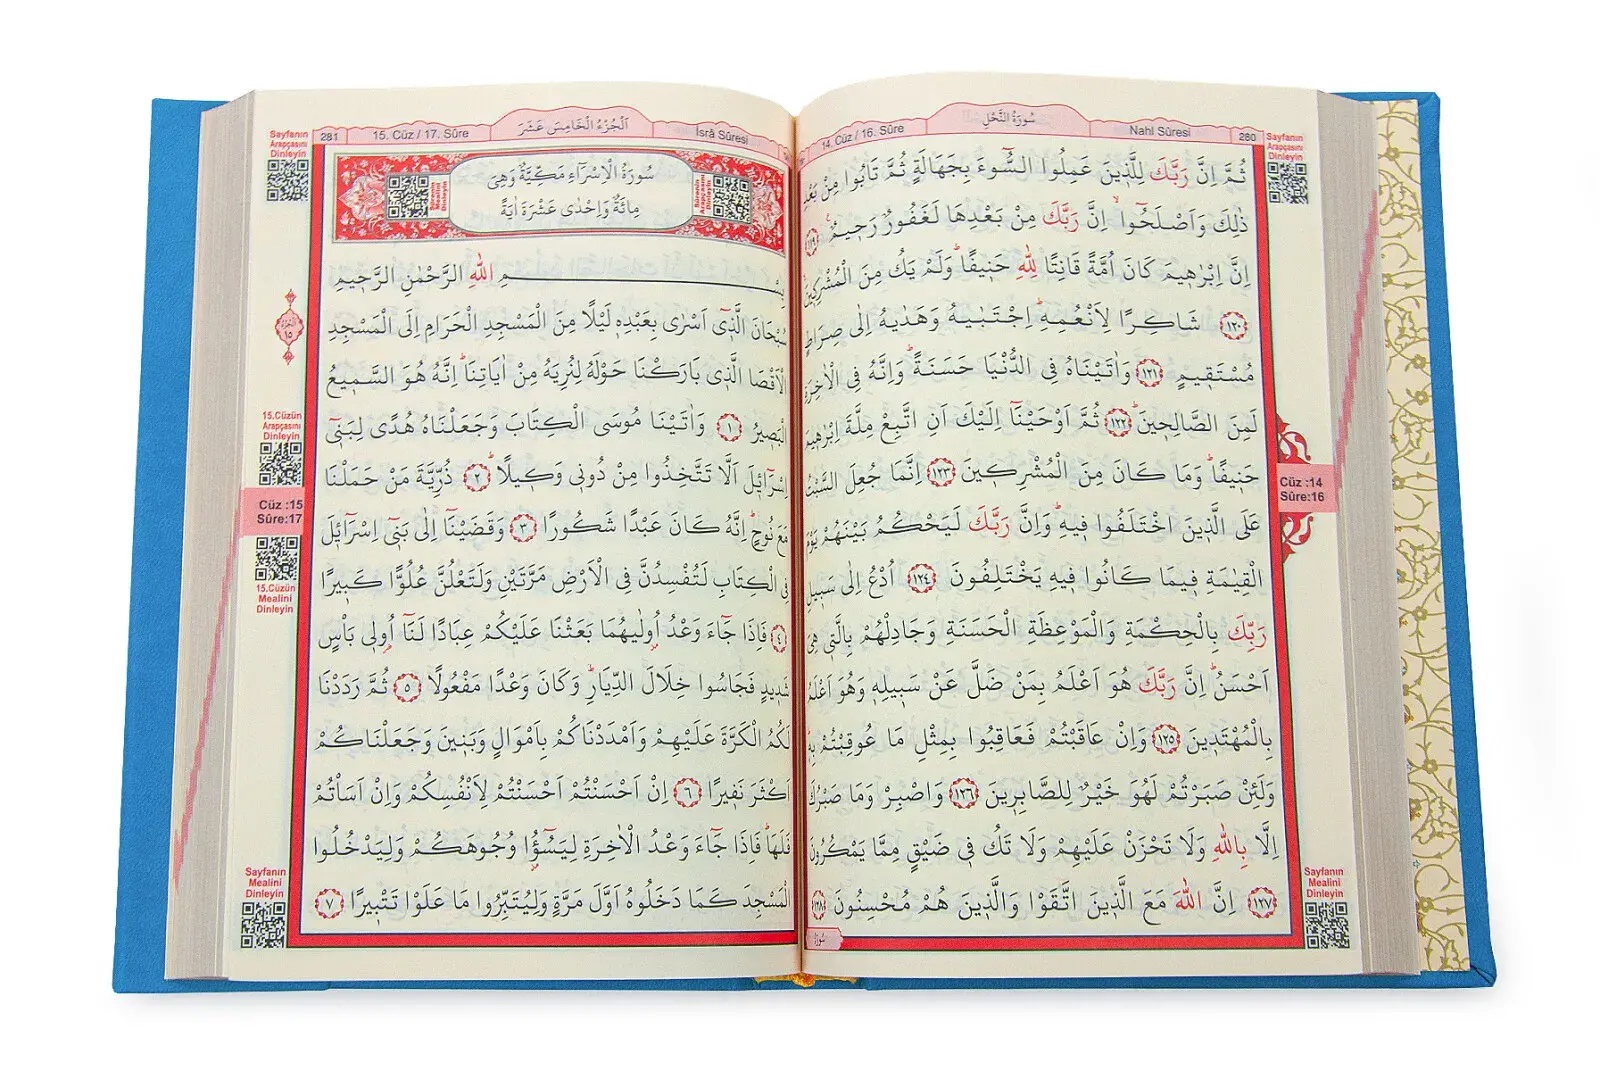 سُورَةُ النَّحْلِ
Nahl Sûresi
14. Cüz / 16. Sûre
280
Sayfanın
Arapçasını
Dinleyin
ثُمَّ اِنَّ رَبَّكَ لِلَّذ۪ينَ عَمِلُوا السُّٓوءَ بِجَهَالَةٍ ثُمَّ تَابُوا مِنْ بَعْدِ
ذٰلِكَ وَاَصْلَحُٓوا اِنَّ رَبَّكَ مِنْ بَعْدِهَا لَغَفُورٌ رَح۪يمٌ ﴿١١٩﴾
اِنَّ اِبْرٰه۪يمَ كَانَ اُمَّةً قَانِتًا لِلّٰهِ حَن۪يفًا وَلَمْ يَكُ مِنَ الْمُشْرِك۪ينَ
﴿١٢٠﴾ شَاكِرًا لِاَنْعُمِهِ اِجْتَبٰيهُ وَهَدٰيهُ اِلٰى صِرَاطٍ
مُسْتَق۪يمٍ ﴿١٢١﴾ وَاٰتَيْنَاهُ فِي الدُّنْيَا حَسَنَةً وَاِنَّهُ فِي الْاٰخِرَةِ
لَمِنَ الصَّالِح۪ينَ ﴿١٢٢﴾ ثُمَّ اَوْحَيْنَٓا اِلَيْكَ اَنِ اتَّبِعْ مِلَّةَ اِبْرٰه۪يمَ
حَن۪يفًا وَمَا كَانَ مِنَ الْمُشْرِك۪ينَ ﴿١٢٣﴾ اِنَّمَا جُعِلَ السَّبْتُ
عَلَى الَّذ۪ينَ اخْتَلَفُوا ف۪يهِ وَاِنَّ رَبَّكَ لَيَحْكُمُ بَيْنَهُمْ يَوْمَ
الْقِيٰمَةِ ف۪يمَا كَانُوا ف۪يهِ يَخْتَلِفُونَ ﴿١٢٤﴾ اُدْعُ اِلٰى سَب۪يلِ
رَبِّكَ بِالْحِكْمَةِ وَالْمَوْعِظَةِ الْحَسَنَةِ وَجَادِلْهُمْ بِالَّت۪ي هِيَ
اَحْسَنُ اِنَّ رَبَّكَ هُوَ اَعْلَمُ بِمَنْ ضَلَّ عَنْ سَب۪يلِه۪ وَهُوَ اَعْلَمُ
بِالْمُهْتَد۪ينَ ﴿١٢٥﴾ وَاِنْ عَاقَبْتُمْ فَعَاقِبُوا بِمِثْلِ مَا عُوقِبْتُمْ بِه۪
وَلَئِنْ صَبَرْتُمْ لَهُوَ خَيْرٌ لِلصَّابِر۪ينَ ﴿١٢٦﴾ وَاصْبِرْ وَمَا صَبْرُكَ
اِلَّا بِاللّٰهِ وَلَا تَحْزَنْ عَلَيْهِمْ وَلَا تَكُ ف۪ي ضَيْقٍ مِمَّا يَمْكُرُونَ
﴿١٢٧﴾ اِنَّ اللّٰهَ مَعَ الَّذ۪ينَ اتَّقَوْا وَالَّذ۪ينَ هُمْ مُحْسِنُونَ ﴿١٢٨﴾
سُورَةُ
Cüz :14
Sûre:16
Sayfanın
Mealini
Dinleyin
İsrâ Sûresi
اَلْجُزْءُ الْخَامِسَ عَشَرَ
15. Cüz / 17. Sûre
281
Sayfanın
Arapçasını
Dinleyin
سُورَةُ الْاِسْرَٓاءِ مَكِّيَّةٌ وَهِيَ
مِائَةٌ وَاِحْدٰى عَشْرَةَ اٰيَةً
Sûrenin
Arapçasını
Dinleyin
Sûrenin
Mealini
Dinleyin
بِسْمِ اللّٰهِ الرَّحْمٰنِ الرَّح۪يمِ
سُبْحَانَ الَّذ۪ٓي اَسْرٰى بِعَبْدِه۪ لَيْلًا مِنَ الْمَسْجِدِ الْحَرَامِ اِلَى الْمَسْجِدِ
الْاَقْصَا الَّذ۪ي بَارَكْنَا حَوْلَهُ لِنُرِيَهُ مِنْ اٰيَاتِنَا اِنَّهُ هُوَ السَّم۪يعُ
الْبَص۪يرُ ﴿١﴾ وَاٰتَيْنَا مُوسَى الْكِتَابَ وَجَعَلْنَاهُ هُدًى لِبَن۪ٓي
اِسْرَٓائ۪لَ اَلَّا تَتَّخِذُوا مِنْ دُون۪ي وَك۪يلًا ﴿٢﴾ ذُرِّيَّةَ مَنْ حَمَلْنَا
مَعَ نُوحٍ اِنَّهُ كَانَ عَبْدًا شَكُورًا ﴿٣﴾ وَقَضَيْنَٓا اِلٰى بَن۪ٓي اِسْرَٓائ۪لَ
فِي الْكِتَابِ لَتُفْسِدُنَّ فِي الْاَرْضِ مَرَّتَيْنِ وَلَتَعْلُنَّ عُلُوًّا كَب۪يرًا
﴿٤﴾ فَاِذَا جَٓاءَ وَعْدُ اُو۫لٰيهُمَا بَعَثْنَا عَلَيْكُمْ عِبَادًا لَنَٓا اُو۬ل۪ي بَأْسٍ
شَد۪يدٍ فَجَاسُوا خِلَالَ الدِّيَارِ وَكَانَ وَعْدًا مَفْعُولًا ﴿٥﴾ ثُمَّ رَدَدْنَا
لَكُمُ الْكَرَّةَ عَلَيْهِمْ وَاَمْدَدْنَاكُمْ بِاَمْوَالٍ وَبَن۪ينَ وَجَعَلْنَاكُمْ
اَكْثَرَ نَف۪يرًا ﴿٦﴾ اِنْ اَحْسَنْتُمْ اَحْسَنْتُمْ لِاَنْفُسِكُمْ وَاِنْ اَسَأْتُمْ
فَلَهَا فَاِذَا جَٓاءَ وَعْدُ الْاٰخِرَةِ لِيَسُٓوؤُ۫ا وُجُوهَكُمْ وَلِيَدْخُلُوا
الْمَسْجِدَ كَمَا دَخَلُوهُ اَوَّلَ مَرَّةٍ وَلِيُتَبِّرُوا مَا عَلَوْا تَتْب۪يرًا ﴿٧﴾
اَلْجُزْءُ
١٥
15.Cüzün
Arapçasını
Dinleyin
Cüz :15
Sûre:17
15.Cüzün
Mealini
Dinleyin
Sayfanın
Mealini
Dinleyin